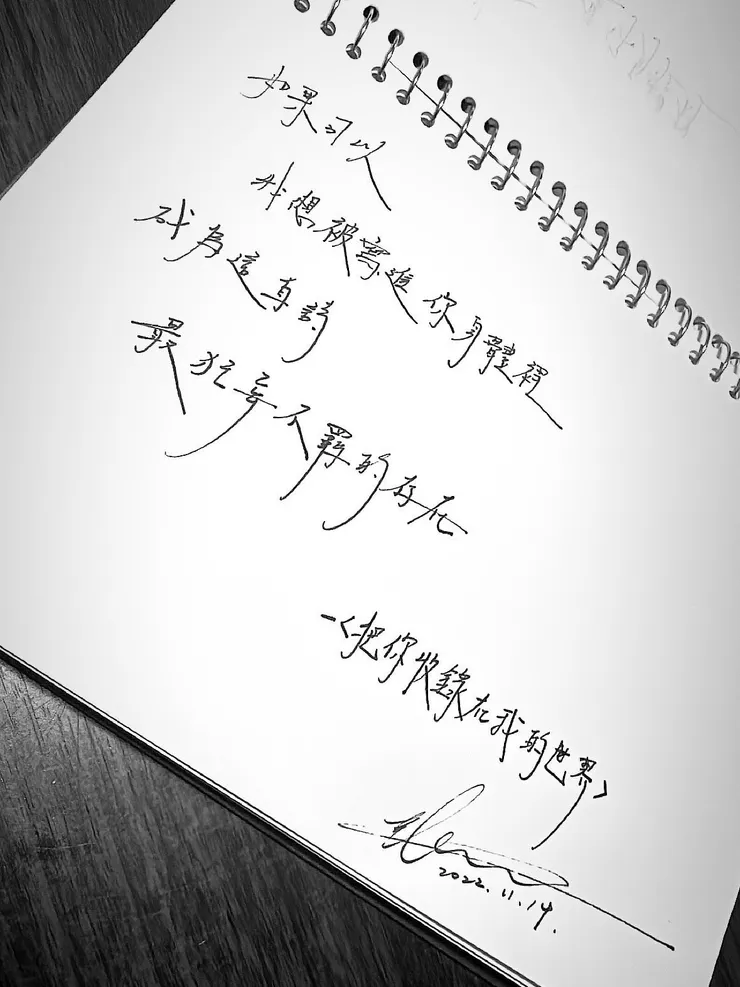 如果可以
我想被寫進你身體裡
成為這首詩
最狂妄不羈的存在
-〈把你收錄在我的世界〉
2022.11.14.